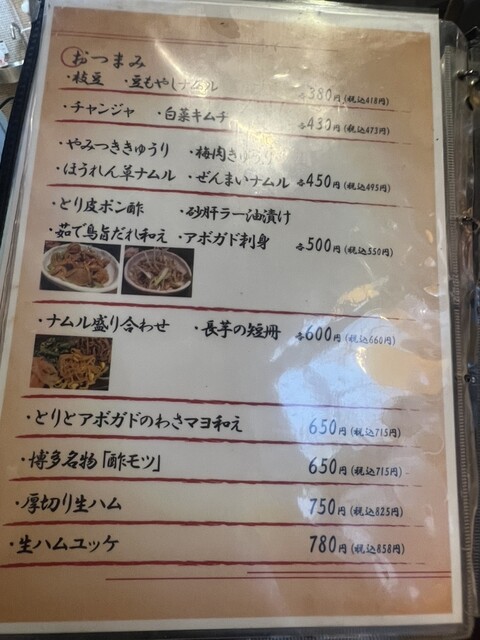 おつまみ
・枝豆 ・豆もやしナムル 各380円(税込418円)
・チャンジャ ・白菜キムチ 各430円(税込473円)
・やみつききゅうり ・梅肉きゅうり
・ほうれん草ナムル ・ぜんまいナムル 各450円(税込495円)
・とり皮ポン酢 ・砂肝ラー油漬け
・茹で鳥旨だれ和え ・アボガド刺身 各500円(税込550円)
・ナムル盛り合わせ ・長芋の短冊 各600円(税込660円)
・とりとアボガドのわさマヨ和え 650円(税込715円)
・博多名物「酢モツ」 650円(税込715円)
・厚切り生ハム 750円(税込825円)
・生ハムユッケ 780円(税込858円)